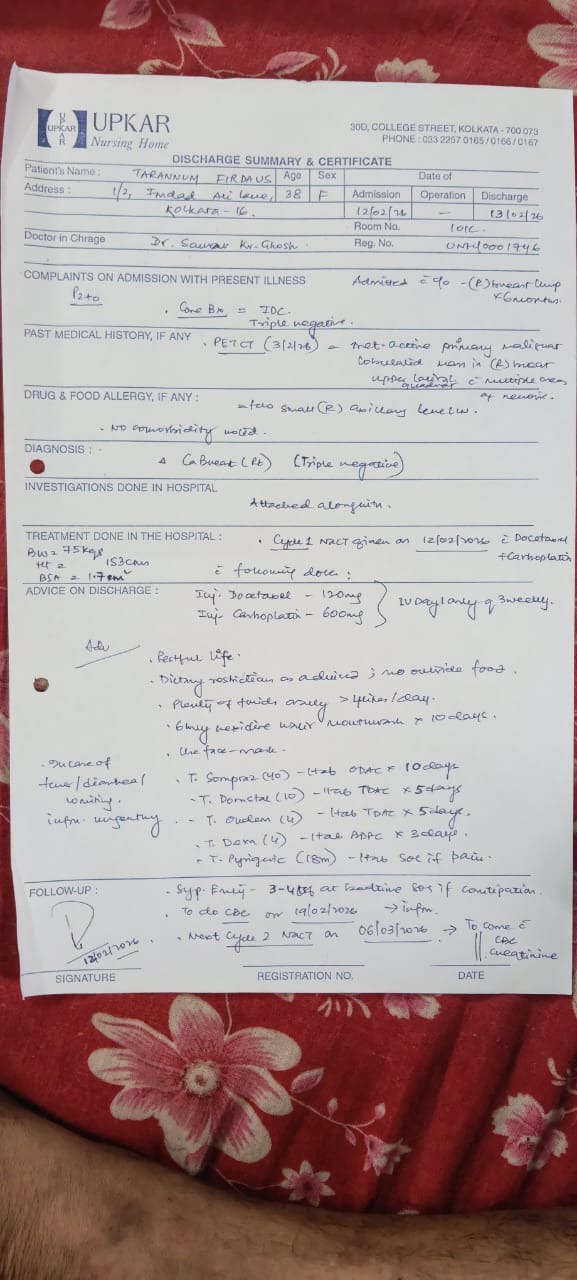 UPKAR
UPKAR Nursing Home
30D, COLLEGE STREET, KOLKATA - 700 073
PHONE : 033 2257 0165 / 0166 / 0167
DISCHARGE SUMMARY & CERTIFICATE
Patient's Name : TARANNUM FIRDAUS Age Sex Date of
Address : 1/2, Imdad Ali Lane, 38 F Admission Operation Discharge
Kolkata - 16. 12/02/26 — 13/02/26
Room No. 101C.
Doctor in Chrage Dr. Saurav Kr. Ghosh. Reg. No.
COMPLAINTS ON ADMISSION WITH PRESENT ILLNESS Admitted c̄ c/o - (R) breast lump
P2+0 x 6 months.
. Core Bx = IDC.
Triple negative.
PAST MEDICAL HISTORY, IF ANY . PETCT (3/2/26) = met. active primary malignant
lobulated mass in (R) breast
upper quadrant c̄ multiple areas
DRUG & FOOD ALLERGY, IF ANY : of necrosis.
small (R) axillary level
. No comorbidity noted.
DIAGNOSIS : Δ Ca Breast (Rt) (Triple negative)
INVESTIGATIONS DONE IN HOSPITAL
Attached alongwith.
TREATMENT DONE IN THE HOSPITAL : . Cycle 1 NACT given on 12/02/2026 c̄ Docetaxel
BW = 75 kgs + Carboplatin
Ht = 153 cms c̄ following dose :
BSA = 1.7 m²
ADVICE ON DISCHARGE : Inj. Docetaxel - 120mg
Inj. Carboplatin - 600mg } IV Day 1 only q 3 weekly.
Adv
. Restful life.
. Dietary restriction as advised ; no outside food.
. Plenty of fluids orally > 4 litres/day.
. mouthwash x 10 days.
. Use face-mask.
. In case of . T. Sompraz (40) - 1 tab ODAC x 10 days
fever/diarrhoea/ - T. Domstal (10) - 1 tab TDAC x 5 days
vomiting, - T. Ondem (4) - 1 tab TDAC x 5 days.
infm. urgently . T. Dexa (4) - 1 tab BDPC x 3 days.
- T. Pyrigesic (1gm) - 1 tab SOS if pain.
FOLLOW-UP : . Syp. 3-4 tsf at bedtime SOS if constipation.
. To do CBC on 19/02/2026 → infm.
12/02/2026 . Next Cycle 2 NACT on 06/03/2026 → To come c̄
CBC
creatinine
SIGNATURE REGISTRATION NO. DATE